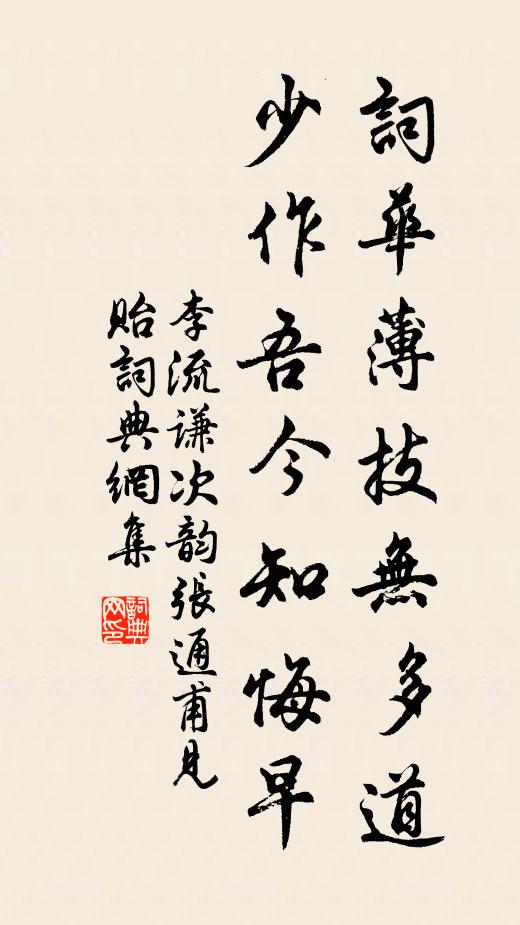 詞華薄技無多道
少作吾今知悔早
李流謙次韵張通甫見
貽詞典網集
詞典
网印